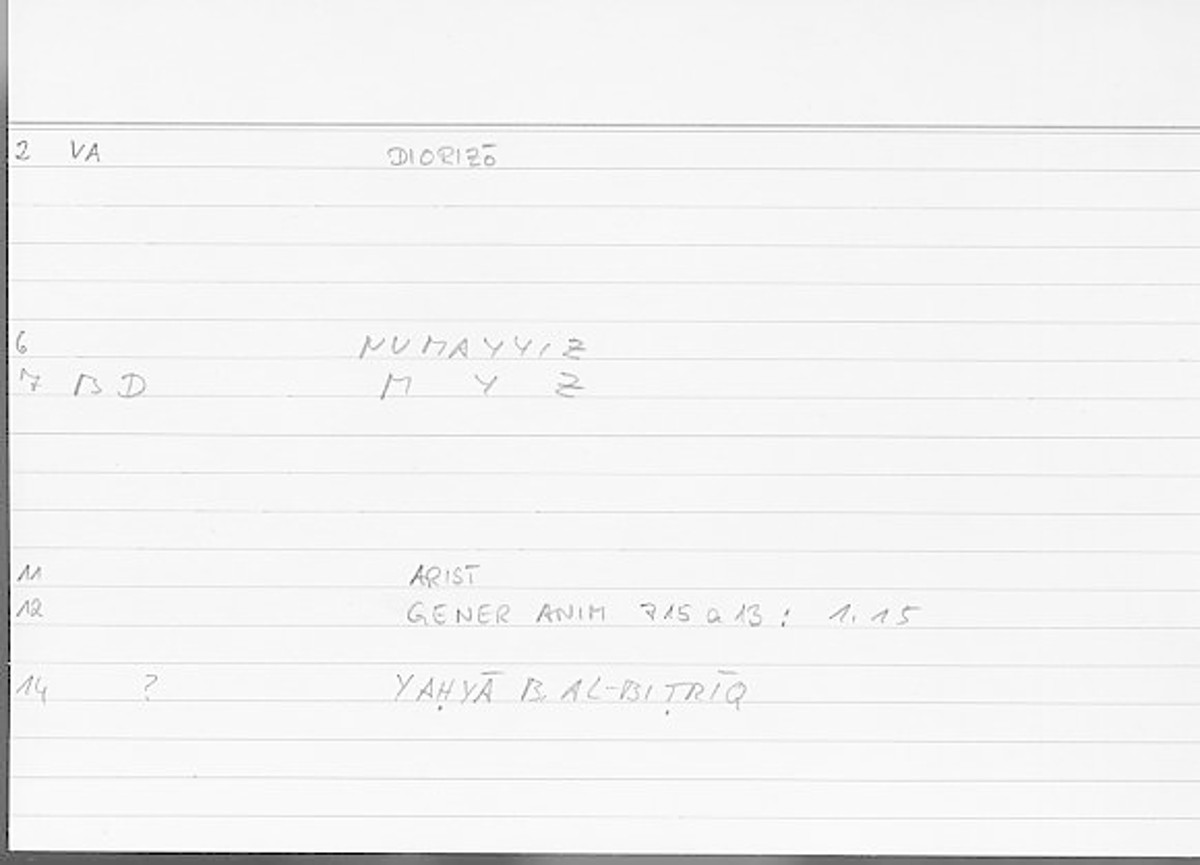 2 VA DIORIZŌ
6 NUMAYYIZ
7 BD M Y Z
11 ARIST
12 GENER ANIM 715 a 13 : 1. 15
14 ? YAḤYĀ B. AL-BIṬRĪQ